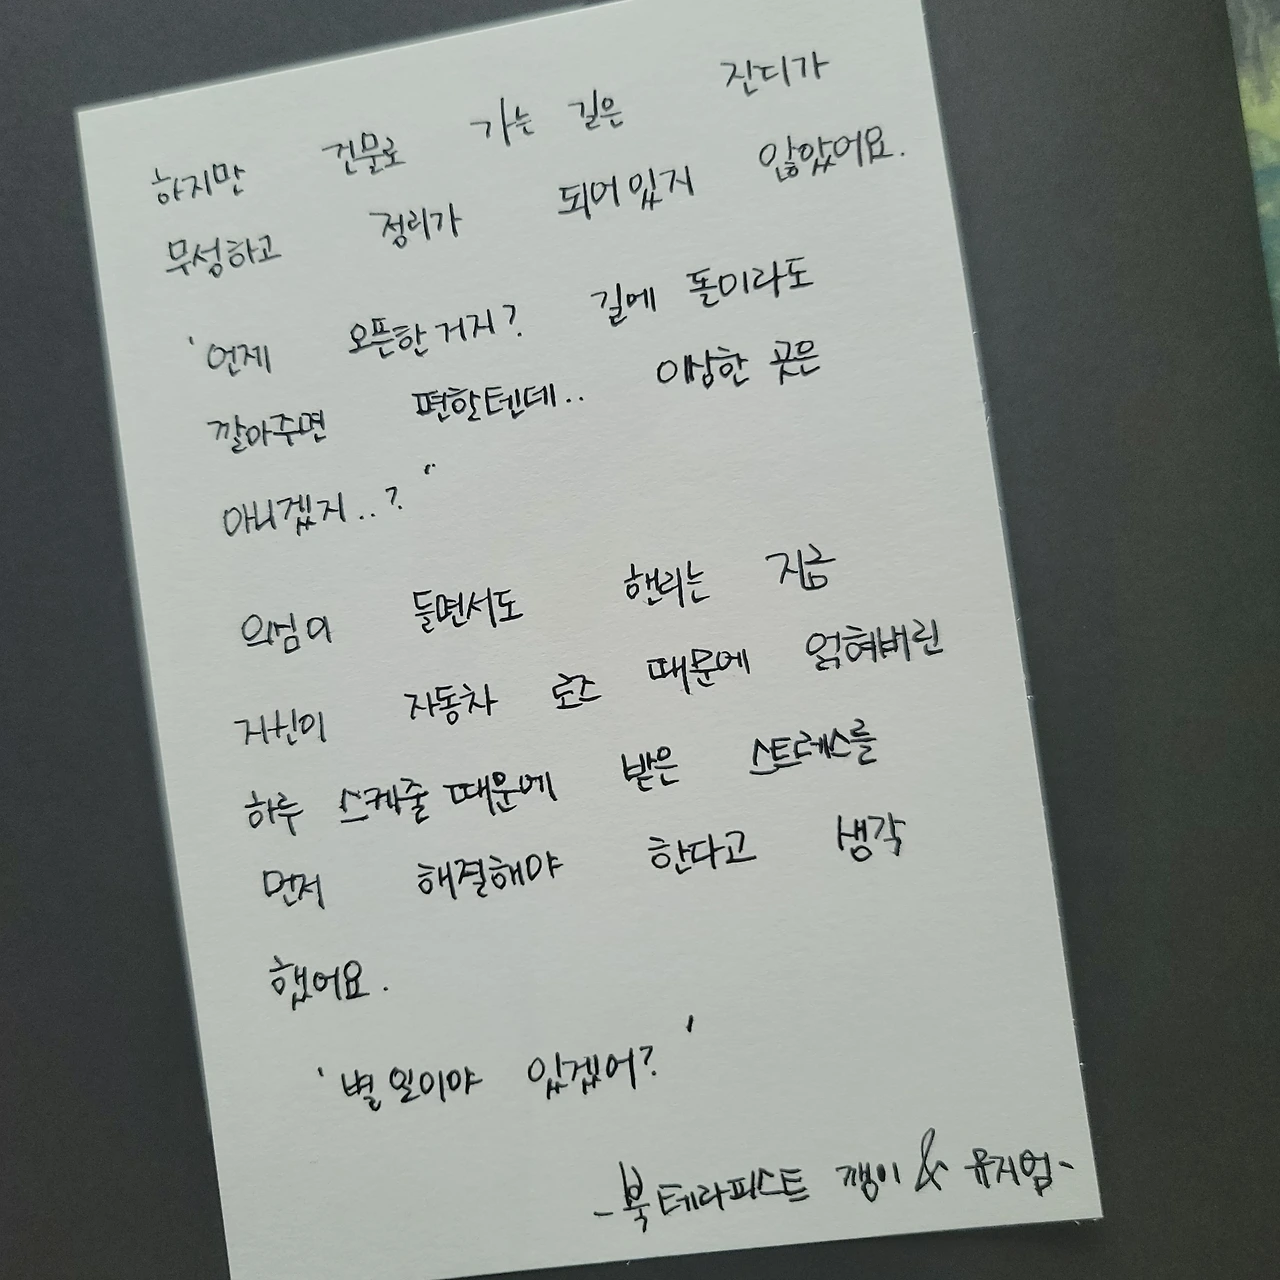 하지만 건물로 가는 길은 잔디가
무성하고 정리가 되어있지 않았어요.
'언제 오픈한거지? 길에 돌이라도
깔아주면 편할텐데.. 이상한 곳은
아니겠지..?"
의심이 들면서도 핸리는 지금
자신이 자동차 로즈 때문에 얽혀버린
하루 스케줄때문에 받은 스트레스를
먼저 해결해야 한다고 생각
했어요.
'별일이야 있겠어?'
-북테라피스트 깽이 & 유지엄-